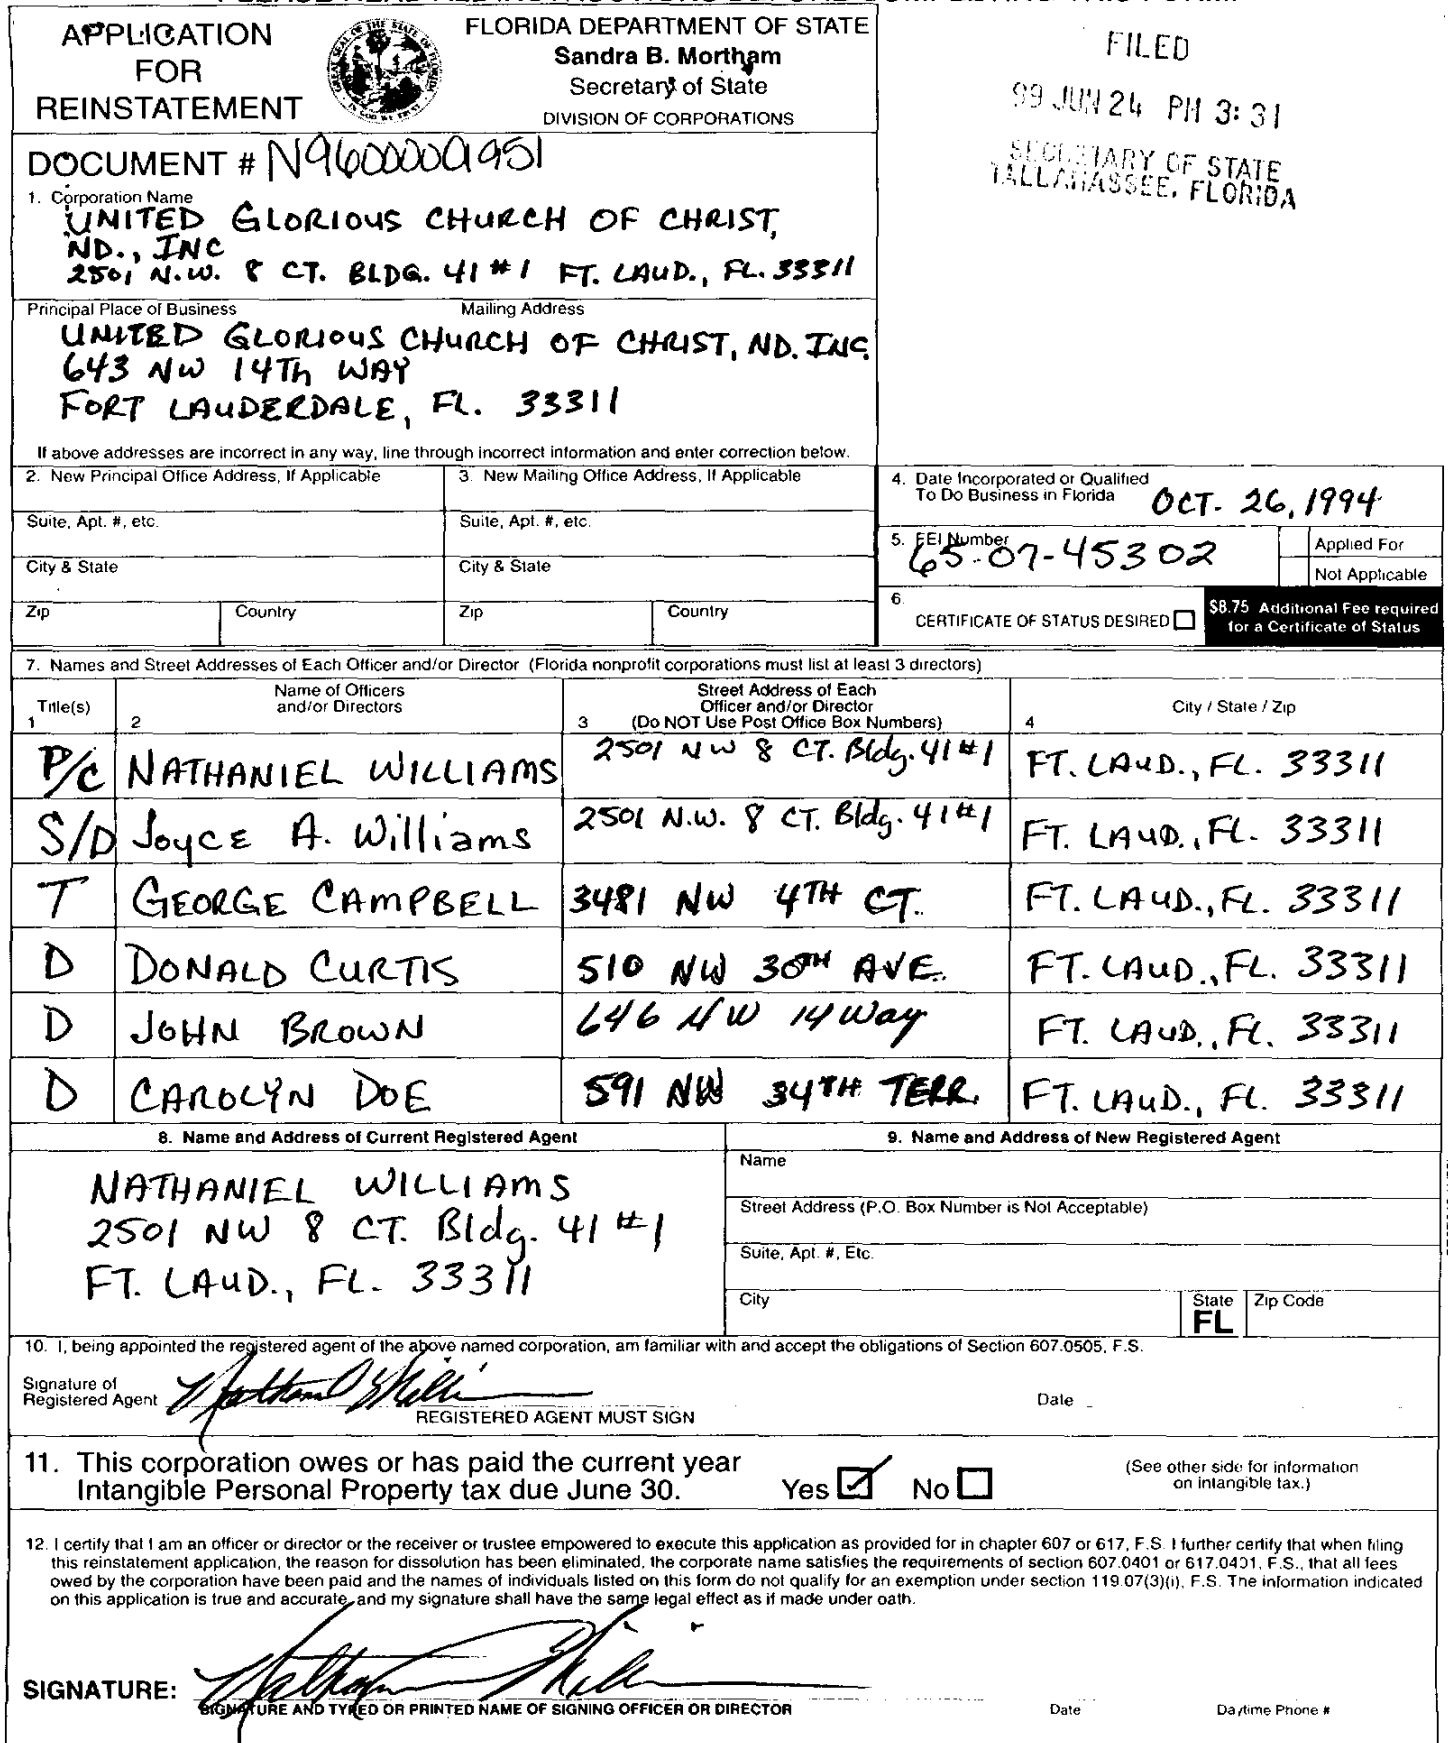 APPLICATION
FOR
REINSTATEMENT
FLORIDA DEPARTMENT OF STATE
Sandra B. Mortham
Secretary of State
DIVISION OF CORPORATIONS
FILED
99 JUN 24 PM 3:31
SECRETARY OF STATE
TALLAHASSEE, FLORIDA
DOCUMENT #
1. Corporation Name
UNITED GLORIOUS CHURCH OF CHRIST,
ND., INC
2501 N.W. 8 CT. BLDG. 41 #1 FT. LAUD., FL. 33311
Principal Place of Business Mailing Address
UNITED GLORIOUS CHURCH OF CHRIST, ND. INC.
643 NW 14Th WAY
FORT LAUDERDALE, FL. 33311
If above addresses are incorrect in any way, line through incorrect information and enter correction below.
2. New Principal Office Address, If Applicable
3. New Mailing Office Address, If Applicable
Suite, Apt. #, etc.
Suite, Apt. #, etc.
City & State
City & State
Zip Country
Zip Country
4. Date Incorporated or Qualified
To Do Business in Florida OCT. 26, 1994
5. FEI Number
65-07-45302
Applied For
Not Applicable
6.
CERTIFICATE OF STATUS DESIRED
$8.75 Additional Fee required
for a Certificate of Status
7. Names and Street Addresses of Each Officer and/or Director (Florida nonprofit corporations must list at least 3 directors)
Title(s)
1
Name of Officers
and/or Directors
2
Street Address of Each
Officer and/or Director
3 (Do NOT Use Post Office Box Numbers)
City / State / Zip
4
P/C NATHANIEL WILLIAMS 2501 NW 8 CT. Bldg. 41 #1 FT. LAUD., FL. 33311
S/D Joyce A. Williams 2501 N.W. 8 CT. Bldg. 41 #1 FT. LAUD., FL. 33311
T GEORGE CAMPBELL 3481 NW 4TH CT. FT. LAUD., FL. 33311
D DONALD CURTIS 510 NW 30TH AVE. FT. LAUD., FL. 33311
D JOHN BROWN 646 NW 14 Way FT. LAUD., FL. 33311
D CAROLYN DOE 591 NW 34TH TERR. FT. LAUD., FL. 33311
8. Name and Address of Current Registered Agent
NATHANIEL WILLIAMS
2501 NW 8 CT. Bldg. 41 #1
FT. LAUD., FL. 33311
9. Name and Address of New Registered Agent
Name
Street Address (P.O. Box Number is Not Acceptable)
Suite, Apt. #, Etc.
City State Zip Code
FL
10. I, being appointed the registered agent of the above named corporation, am familiar with and accept the obligations of Section 607.0505, F.S.
Signature of
Registered Agent Date
REGISTERED AGENT MUST SIGN
11. This corporation owes or has paid the current year
Intangible Personal Property tax due June 30. Yes No
(See other side for information
on intangible tax.)
12. I certify that I am an officer or director or the receiver or trustee empowered to execute this application as provided for in chapter 607 or 617, F.S. I further certify that when filing
this reinstatement application, the reason for dissolution has been eliminated, the corporate name satisfies the requirements of section 607.0401 or 617.0401, F.S., that all fees
owed by the corporation have been paid and the names of individuals listed on this form do not qualify for an exemption under section 119.07(3)(i), F.S. The information indicated
on this application is true and accurate, and my signature shall have the same legal effect as if made under oath.
SIGNATURE:
SIGNATURE AND TYPED OR PRINTED NAME OF SIGNING OFFICER OR DIRECTOR Date Daytime Phone #